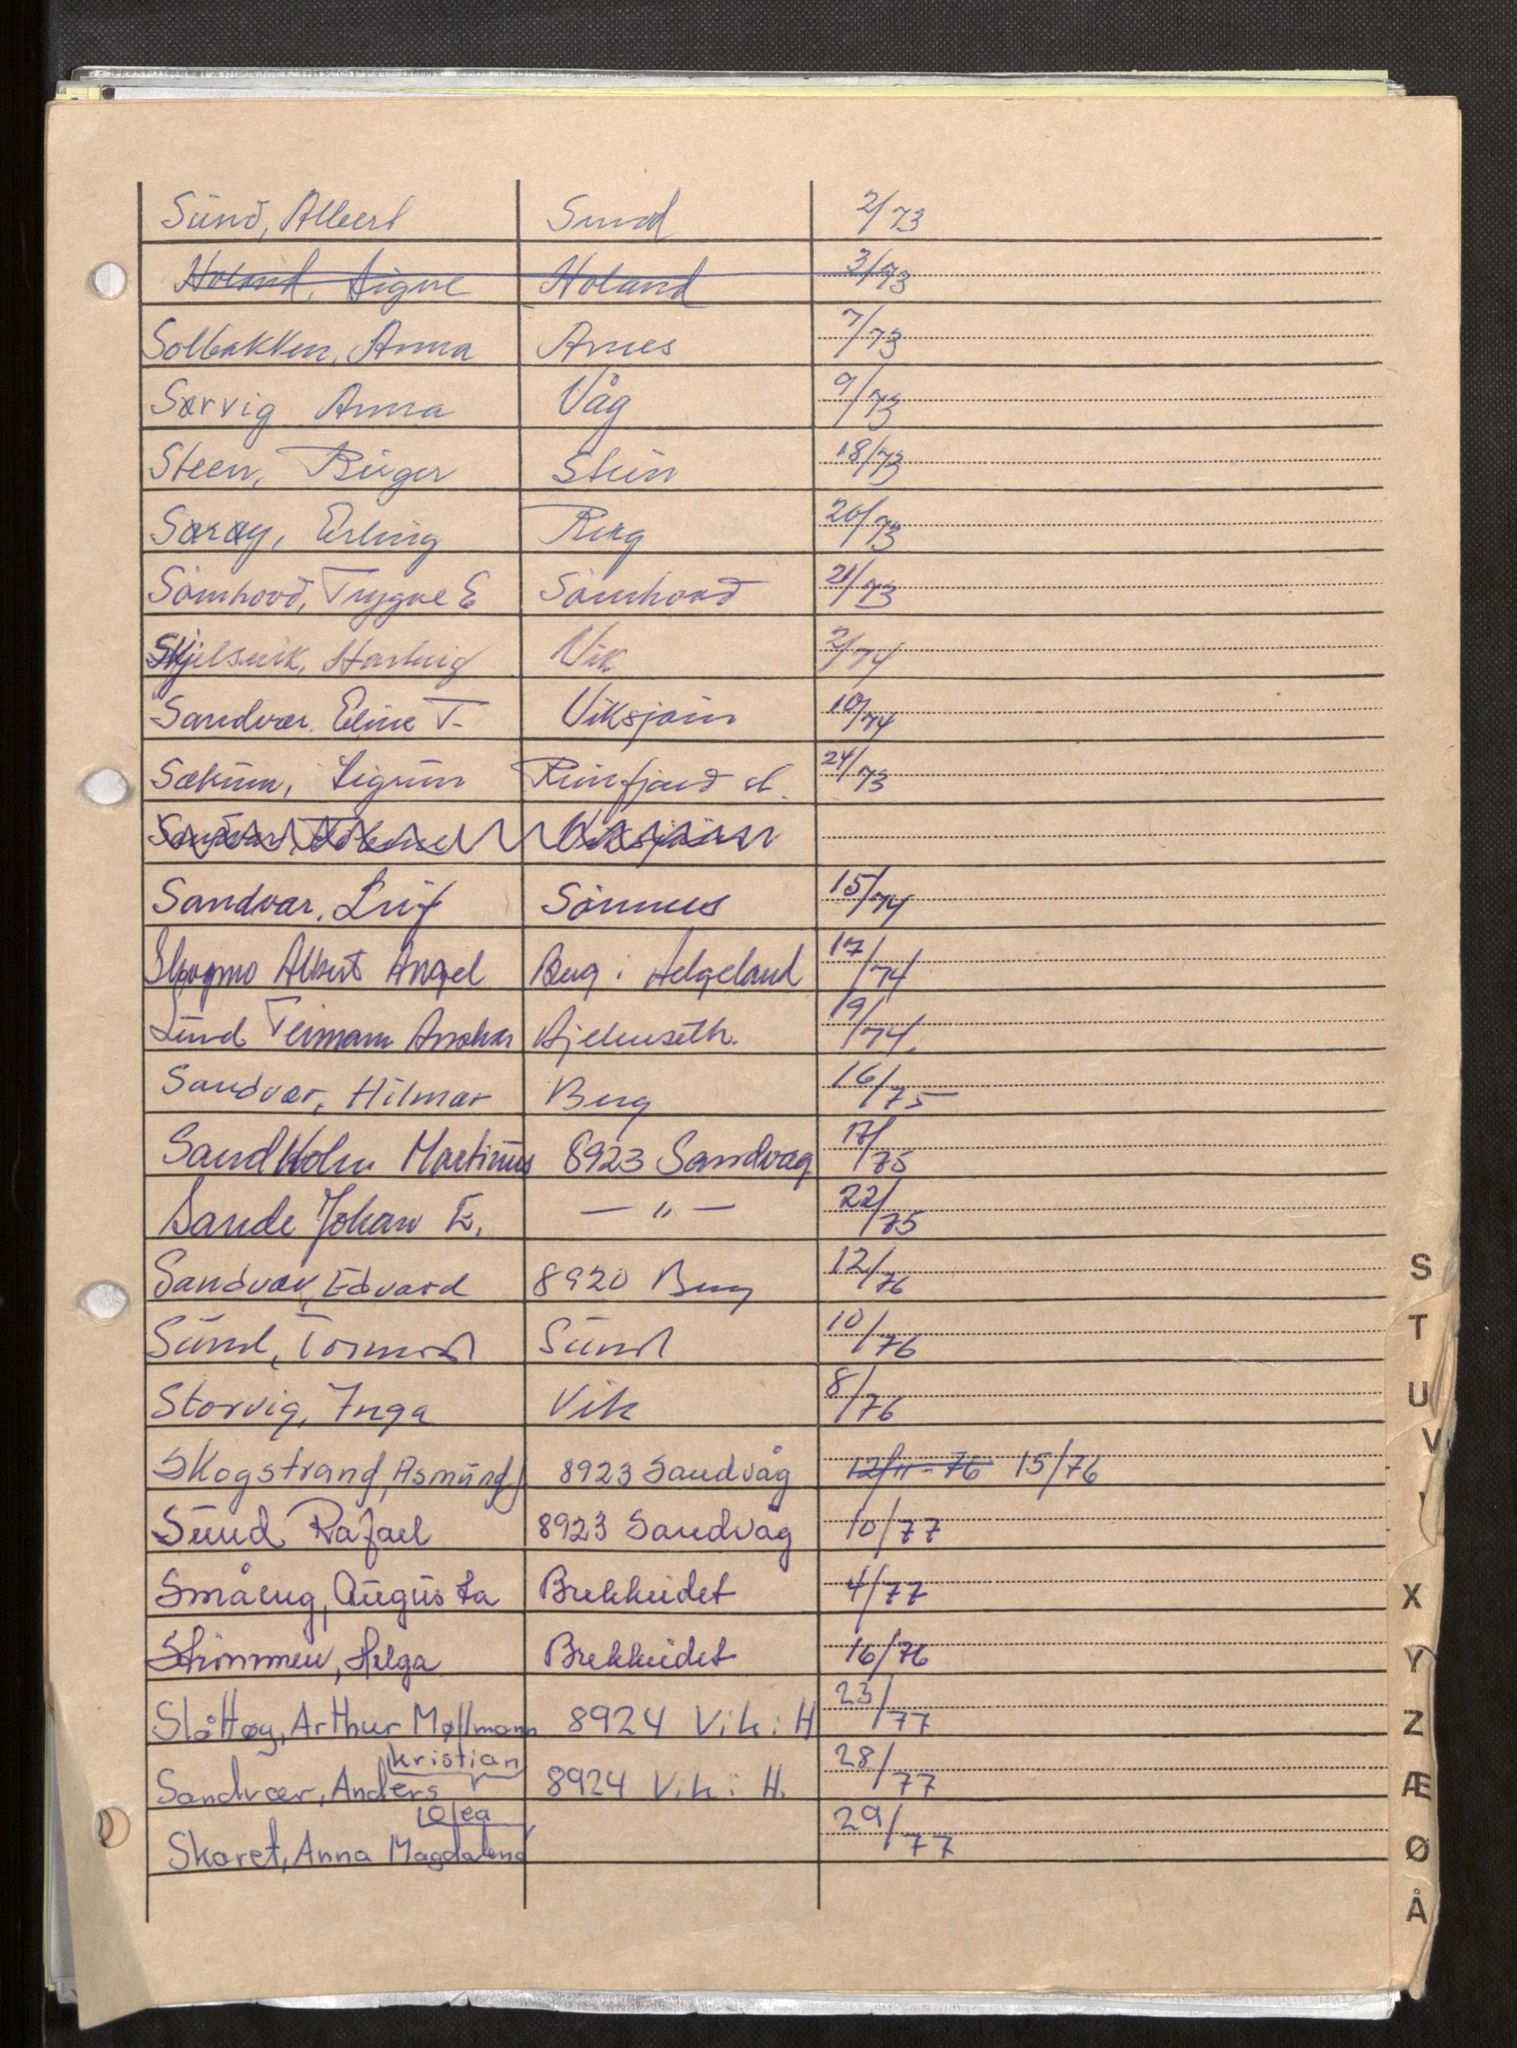 Sund, Albert Sund 2/73
Holand, Signe Holand 3/73
Solbakken, Anna Årnes 7/73
Sørvig Anna Våg 9/73
Steen, Birger Stein 18/73
Sørøy, Erling Berg 20/73
Sömhovd, Trygve E Sömhovd 21/73
Skjelsvik, Hartvig Vik 2/74
Sandvær, Eline T. Viksjøen 10/74
Sækum, Sigrun 24/73
Viksjøen
Sandvær, Leif Sömnes 15/74
Skogmo Albert Angel Berg i Helgeland 17/74
Sund Teimann Anskar 19/74.
Sandvær, Hilmar Berg 16/75
Sandholm Martinus 8923 Sandvåg 17/75
Sande Johan E. — " — 22/75
Sandvær, Edvard 8920 Berg 12/76
Sund, Tormod Sund 10/76
Storvig, Inga Vik 8/76
Skogstrand, Asmund 8923 Sandvåg 12/11-76 15/76
Sund Rafael 8923 Sandvåg 10/77
Småeng, Augusta Brekkeidet 4/77
Strömmen, Helga Brekkeidet 16/76
Slåttøy, Arthur Møllmann 8924 Vik i H 23/77
Kristian
Sandvær, Anders 8924 Vik i H. 28/77
Olea
Skaret, Anna Magdalena 29/77
S
T
U
V
X
Y
Z
Æ
Ø
Å